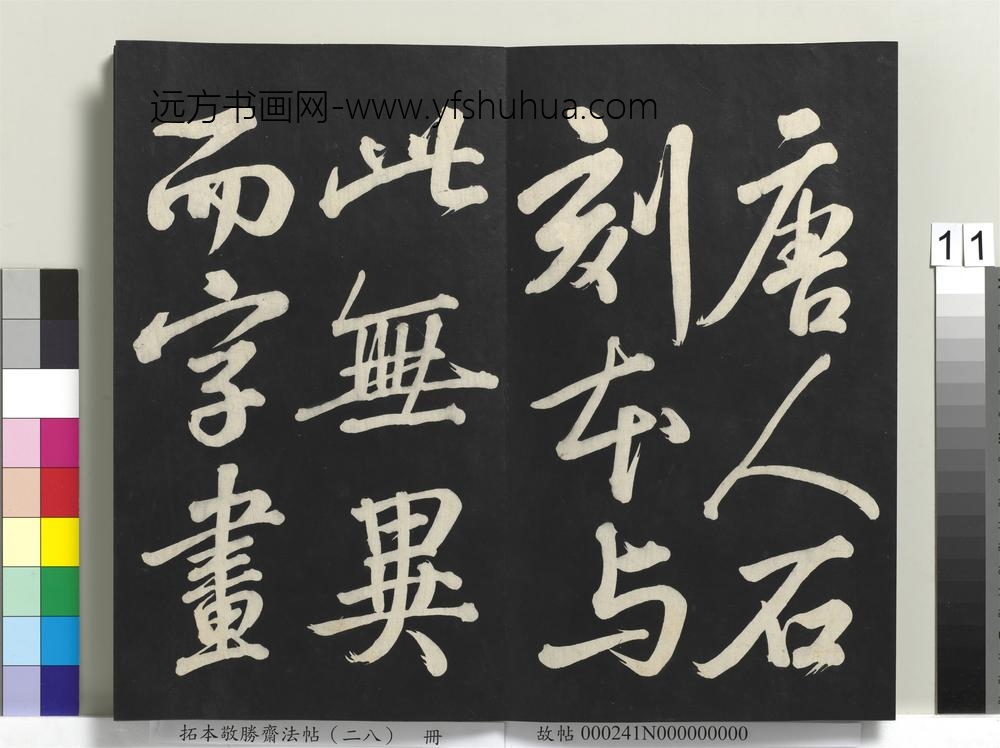 远方书画网-www.yfshuhua.com
唐人石
刻本与
此無異
而字畫
拓本敬勝齋法帖（二八） 冊
故帖 000241N000000000
11